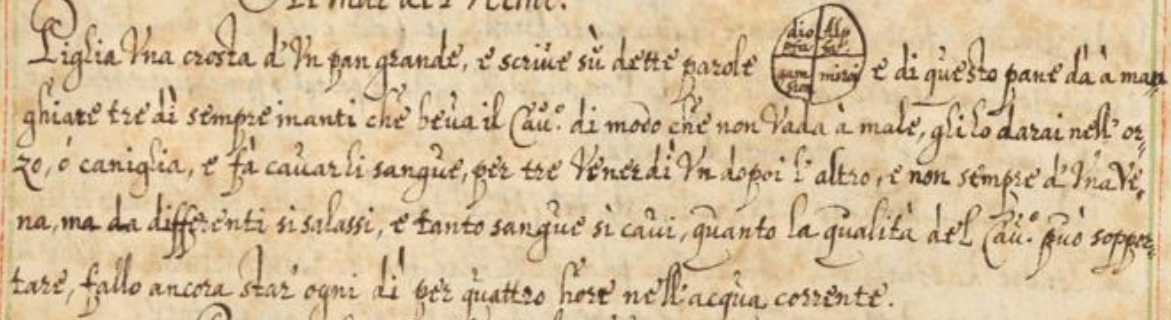 Piglia Vna crosta d'Vn pan grande, e scriue sù dette parole e di questo pane dà à man
ghiare tre dì sempre inanti che beua il Cau.º di modo che non Vada à male, gli lo darai nell' or,
zo, ó caniglia, e fà cauarli sangue, per tre Venerdì Vn dopoi l'altro, e non sempre d'Vna Ve,
na, ma da differenti si salassi, e tanto sangue si caui, quanto la qualità del Cau.º può soppor,
tare, fallo ancora star' ogni dì per quattro hore nell'acqua corrente.